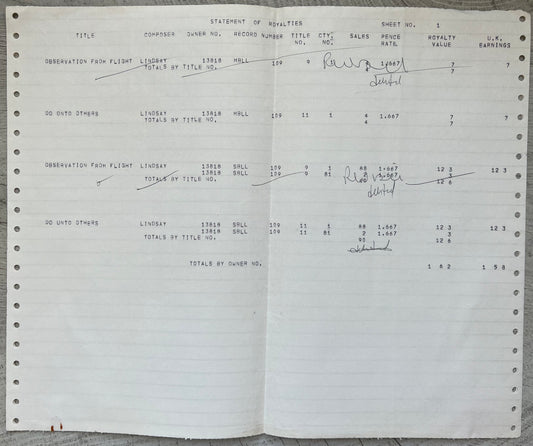 STATEMENT OF ROYALTIES SHEET NO. 1
TITLE COMPOSER OWNER NO. RECORD NUMBER TITLE NO. CTY. NO. SALES PENCE RATE ROYALTY VALUE U.K. EARNINGS
OBSERVATION FROM FLIGHT LINDSAY 13818 MBLL 109 9 1.667 7 7
TOTALS BY TITLE NO. 7
deleted
DO UNTO OTHERS LINDSAY 13818 MBLL 109 11 1 4 1.667 7 7
TOTALS BY TITLE NO. 4 7
OBSERVATION FROM FLIGHT LINDSAY 13818 SBLL 109 9 1 88 1.667 12 3 12 3
13818 SBLL 109 9 81 1.667 3
TOTALS BY TITLE NO. 12 6
deleted
DO UNTO OTHERS LINDSAY 13818 SBLL 109 11 1 88 1.667 12 3 12 3
13818 SBLL 109 11 81 2 1.667 3
TOTALS BY TITLE NO. 90 12 6
TOTALS BY OWNER NO. 1 6 2 1 5 8